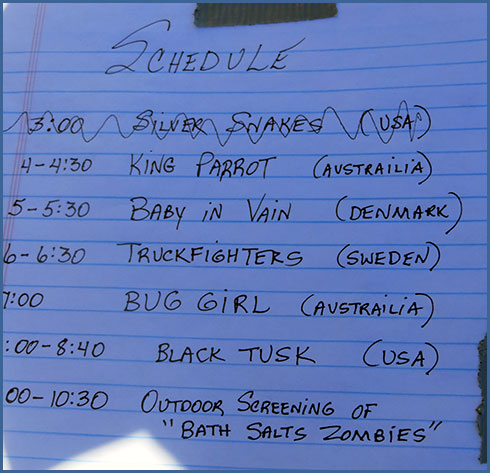 SCHEDULE
3:00 SILVER SNAKES (USA)
4-4:30 KING PARROT (AUSTRAILIA)
5-5:30 BABY IN VAIN (DENMARK)
6-6:30 TRUCKFIGHTERS (SWEDEN)
7:00 BUG GIRL (AUSTRAILIA)
:00-8:40 BLACK TUSK (USA)
00-10:30 OUTDOOR SCREENING OF
"BATH SALTS ZOMBIES"